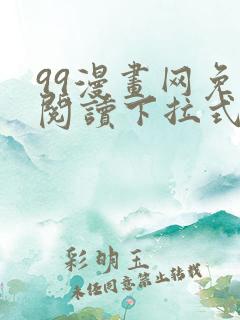 99漫畫网免
閱讀下拉式
彩明玉
未任同意禁止转载